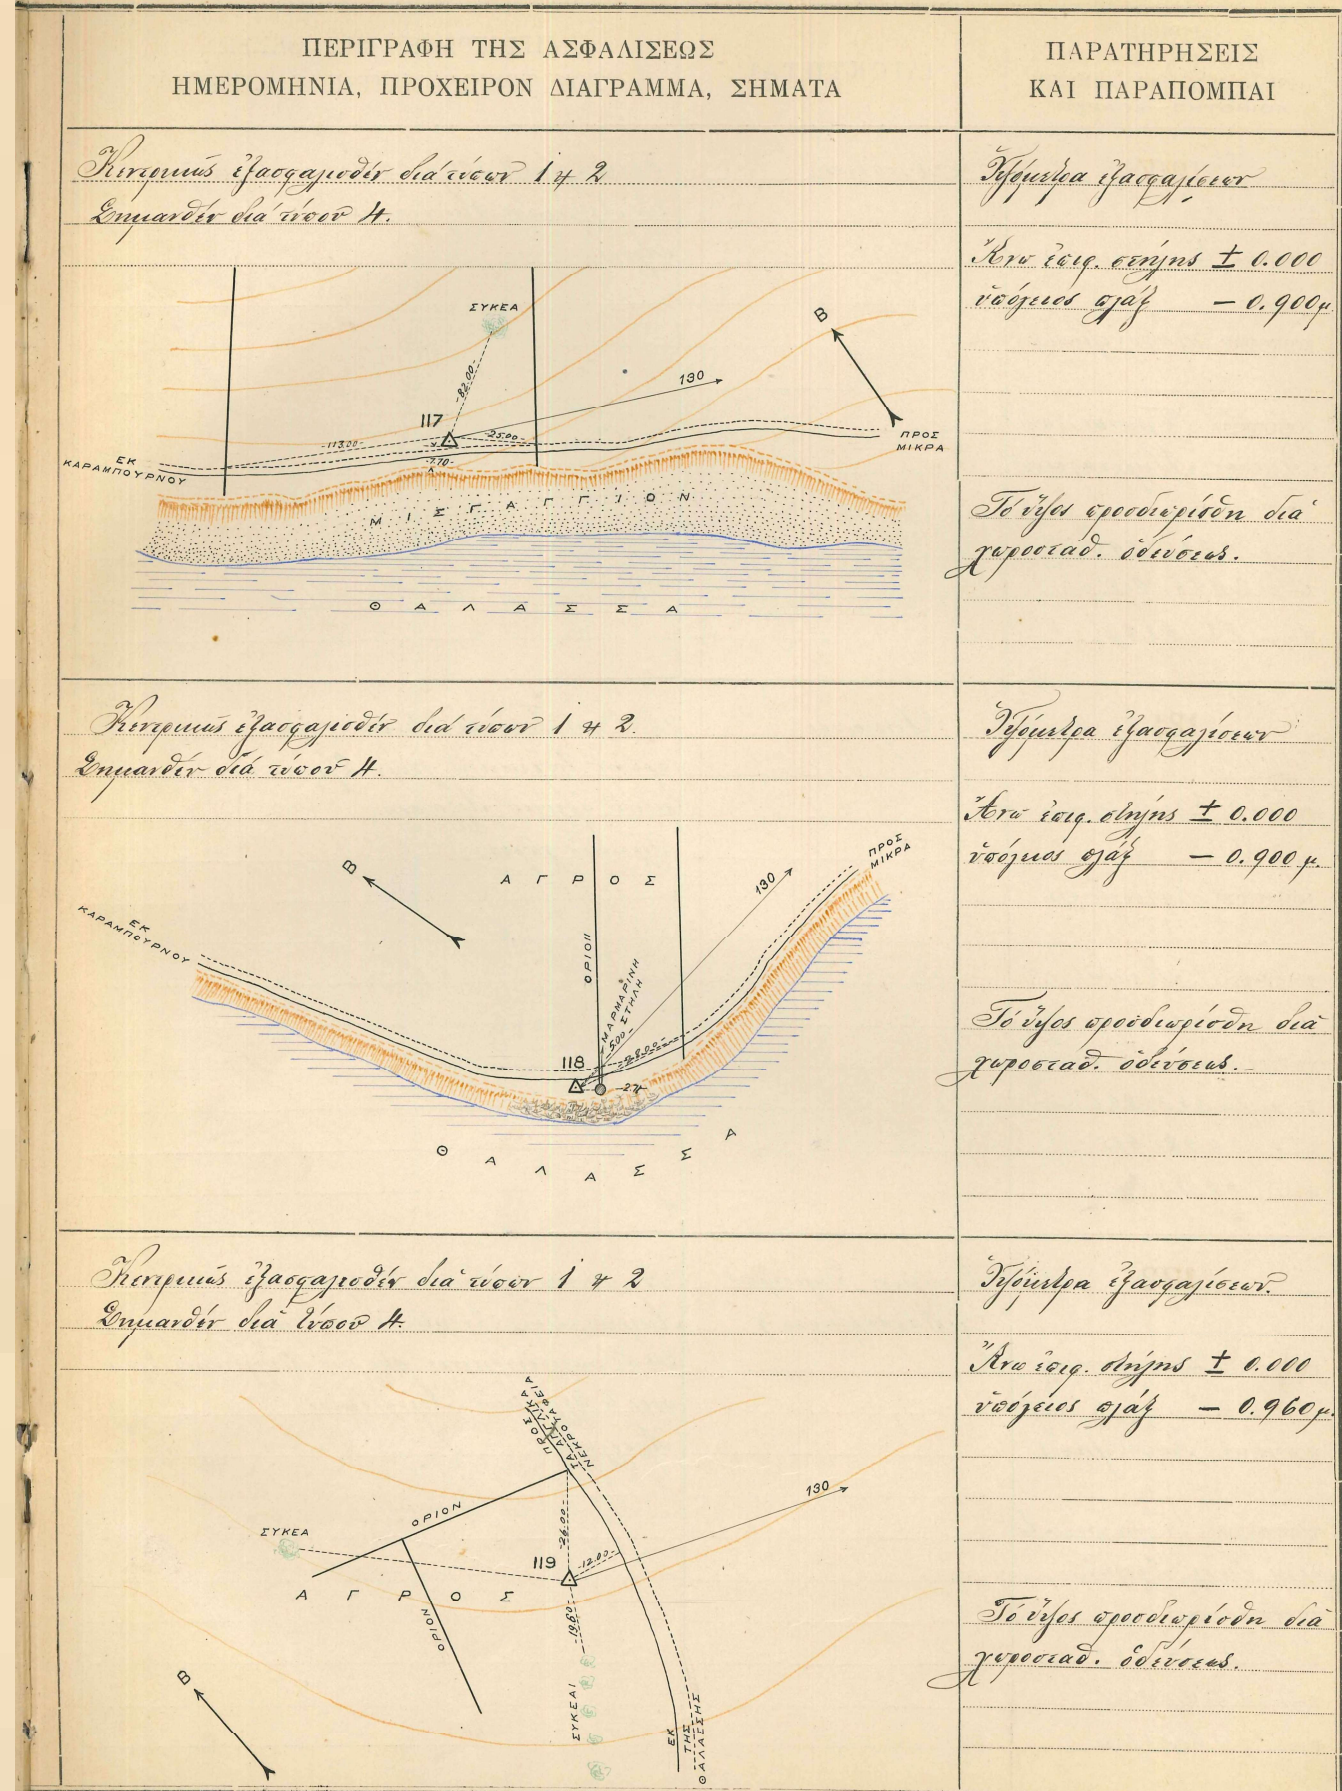 ΠΕΡΙΓΡΑΦΗ ΤΗΣ ΑΣΦΑΛΙΣΕΩΣ
ΗΜΕΡΟΜΗΝΙΑ, ΠΡΟΧΕΙΡΟΝ ΔΙΑΓΡΑΜΜΑ, ΣΗΜΑΤΑ
ΠΑΡΑΤΗΡΗΣΕΙΣ
ΚΑΙ ΠΑΡΑΠΟΜΠΑΙ
Κεντρικῶς ἐξασφαλισθέν διά τύπων 1 & 2
Σημανθέν διά τύπου 4.
ΣΥΚΕΑ
-82.00-
Β
130
117
-113.00-
-25.00-
-7.70-
ΕΚ
ΚΑΡΑΜΠΟΥΡΝΟΥ
ΠΡΟΣ
ΜΙΚΡΑ
ΜΙΣΓΑΓΓΙΟΝ
ΘΑΛΑΣΣΑ
Ὑψόμετρα ἐξασφαλίσεων
Ἄνω ἐπιφ. στήλης ± 0.000
ὑπόγειος πλάξ - 0.900μ
Τό ὕψος προσδιωρίσθη διά
χωροσταθ. ὁδεύσεως.
Κεντρικῶς ἐξασφαλισθέν διά τύπων 1 & 2.
Σημανθέν διά τύπου 4.
ΠΡΟΣ
ΜΙΚΡΑ
Β
ΑΓΡΟΣ
130
ΕΚ
ΚΑΡΑΜΠΟΥΡΝΟΥ
ΟΡΙΟΝ
ΜΑΡΜΑΡΙΝΗ
ΣΤΗΛΗ
5.00-
-28.00-
118
ΘΑΛΑΣΣΑ
Ὑψόμετρα ἐξασφαλίσεων
Ἄνω ἐπιφ. στήλης ± 0.000
ὑπόγειος πλάξ - 0.900 μ.
Τό ὕψος προσδιωρίσθη διά
χωροσταθ. ὁδεύσεως.
Κεντρικῶς ἐξασφαλισθέν διά τύπων 1 & 2
Σημανθέν διά τύπου 4.
ΠΡΟΣ
ΤΑ ΑΓΓΛΙΚΑ
ΝΕΚΡΟΤΑΦΕΙΑ
ΟΡΙΟΝ
130
ΣΥΚΕΑ
-26.00-
119
-12.00-
ΑΓΡΟΣ
ΟΡΙΟΝ
-19.60-
ΣΥΚΕΑΙ
Β
ΕΚ
ΤΗΣ
ΘΑΛΑΣΣΗΣ
Ὑψόμετρα ἐξασφαλίσεων.
Ἄνω ἐπιφ. στήλης ± 0.000
ὑπόγειος πλάξ - 0.960μ.
Τό ὕψος προσδιωρίσθη διά
χωροσταθ. ὁδεύσεως.